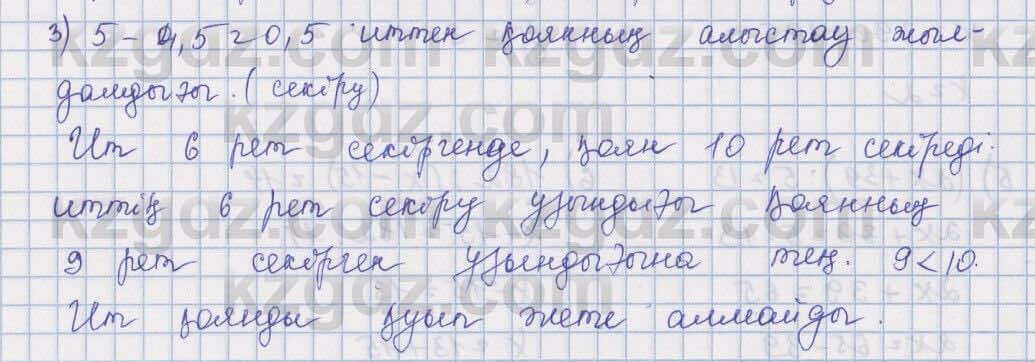 3) 5 - 4,5 = 0,5 иттен қоянның алыстау жыл-
дамдығы. (секіру)
Ит 6 рет секіргенде, қоян 10 рет секіреді.
иттің 6 рет секіру ұзындығы қоянның
9 рет секірген ұзындығына тең. 9 < 10.
Ит қоянды қуып жете алмайды.
kzgdz.com